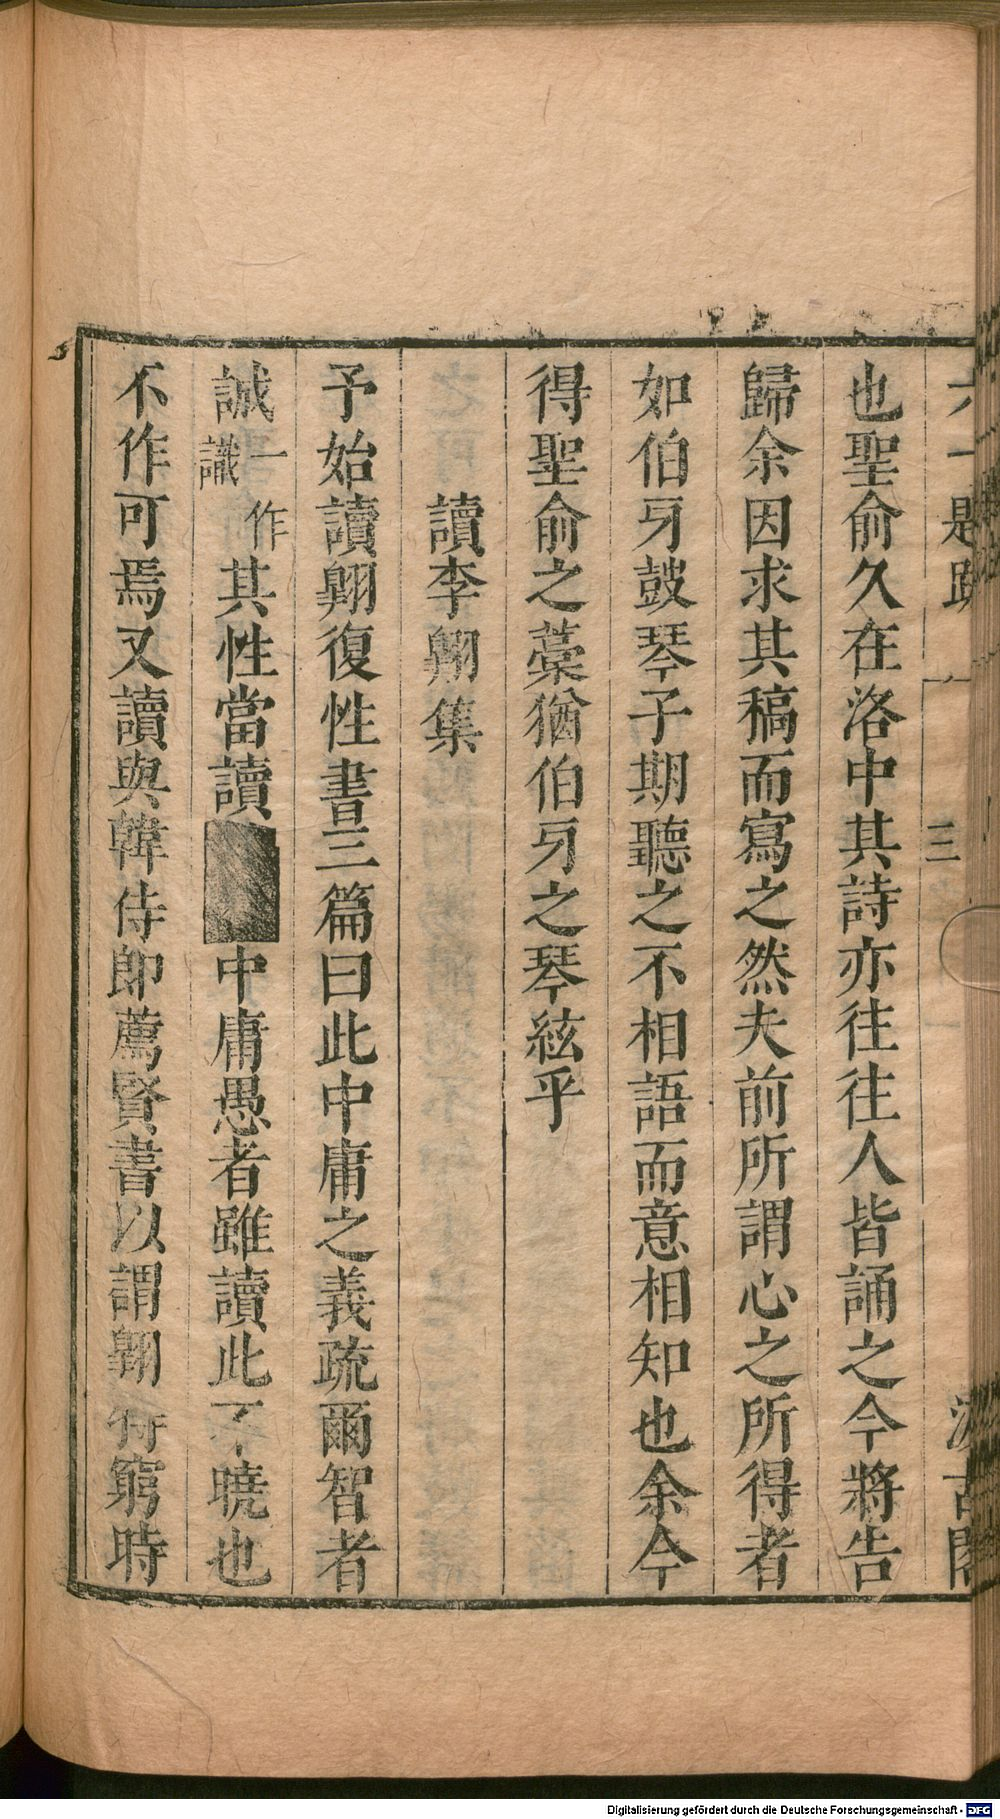 六一題跋
三
汲古閣
也聖俞久在洛中其詩亦往往人皆誦之今將告
歸余因求其稿而寫之然夫前所謂心之所得者
如伯牙鼓琴子期聽之不相語而意相知也余今
得聖俞之藁猶伯牙之琴絃乎
讀李翺集
予始讀翺復性書三篇曰此中庸之義疏爾智者
誠一作識其性當讀中庸愚者雖讀此不曉也
不作可焉又讀與韓侍郎薦賢書以謂翺特窮時
Digitalisierung gefördert durch die Deutsche Forschungsgemeinschaft - DFG